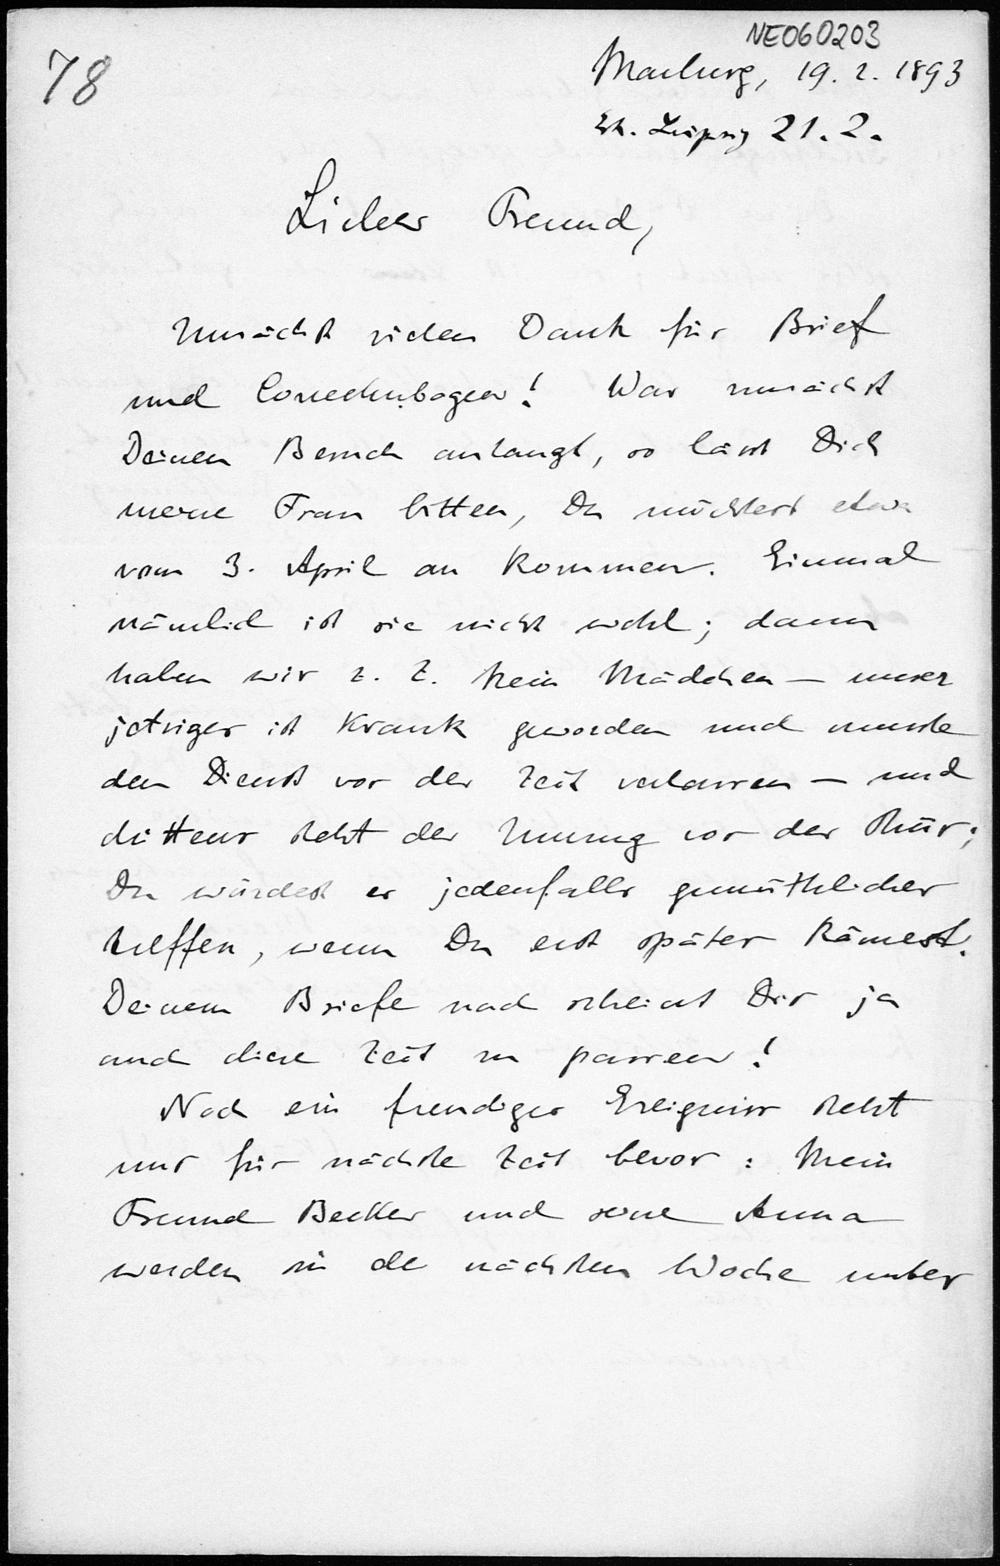 NE060203
78
Marburg, 19. 2. 1893
Eh. Leipzig 21. 2.
Lieber Freund,
Zunächst vielen Dank für Brief
und Correcturbogen! Was zunächst
Deinen Besuch anlangt, so lässt Dich
meine Frau bitten, Du möchtest etwa
vom 3. April an kommen. Einmal
nämlich ist sie nicht wohl; dann
haben wir z. Z. kein Mädchen — unser
jetziges ist krank geworden und musste
den Dienst vor der Zeit verlassen — und
drittens steht der Umzug vor der Thür;
Du würdest es jedenfalls gemüthlicher
treffen, wenn Du erst später kämest.
Deinem Briefe nach scheint Dir ja
auch diese Zeit zu passen!
Noch ein freudiges Ereigniss steht
uns für nächste Zeit bevor: Mein
Freund Becker und seine Anna
werden in de nächsten Woche unser